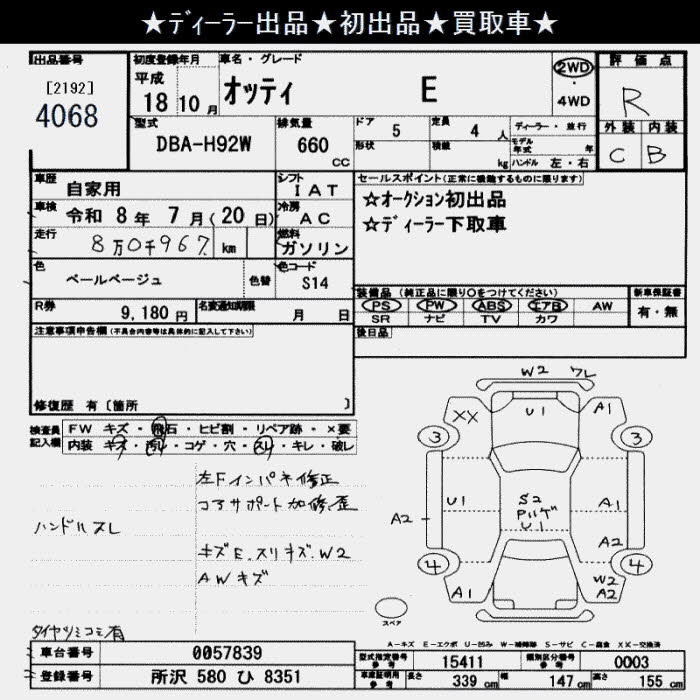 ★ディーラー出品★初出品★買取車★
出品番号 初度登録年月 車名・グレード 評価点
[2192] 平成 オッティ E 2WD・4WD R
4068 18 10月
型式 排気量 ドア 5 定員 4人 ディーラー・並行 外装 内装
DBA-H92W 660cc 形状 積載 kg モデル年式 年 ハンドル 左・右 C B
車歴 自家用 シフト IAT セールスポイント(正常に機能するものに限ります)
車検 令和 8年 7月(20日) 冷房 AC ☆オークション初出品
走行 8万0千967 km 燃料 ガソリン ☆ディーラー下取車
色 ペールベージュ 色替 色コード S14
装備品 (純正品に限り○をつけてください) 新車保証書
R券 9,180円 名変通知期限 月 日 PS PW ABS エアB AW 有・無
SR ナビ TV カワ
注意事項申告欄(不具合内容等は具体的に記入して下さい) 後日品
修復歴 有 〔箇所 〕
検査員記入欄 FW キズ・飛石・ヒビ割・リペア跡・×要
内装 キズ・汚レ・コゲ・穴・スレ・キレ・破レ
左Fインパネ修正
コアサポート加修歪
ハンドルスレ
キズE.スリキズ.W2
AWキズ
タイヤツミコミ有
W2 ワレ
XX U1 A1
3 3
U1 S2 A1
A2 U1 A2
4 4
A1 W2
A2
スペア
A-キズ E-エクボ U-凹み W-補修跡 S-サビ C-腐食 XX-交換済
車台番号 0057839 型式指定番号 参考 15411 類別区分番号 参考 0003
登録番号 所沢 580 ひ 8351 車庫証明用 参考 長さ 339cm 幅 147cm 高さ 155cm